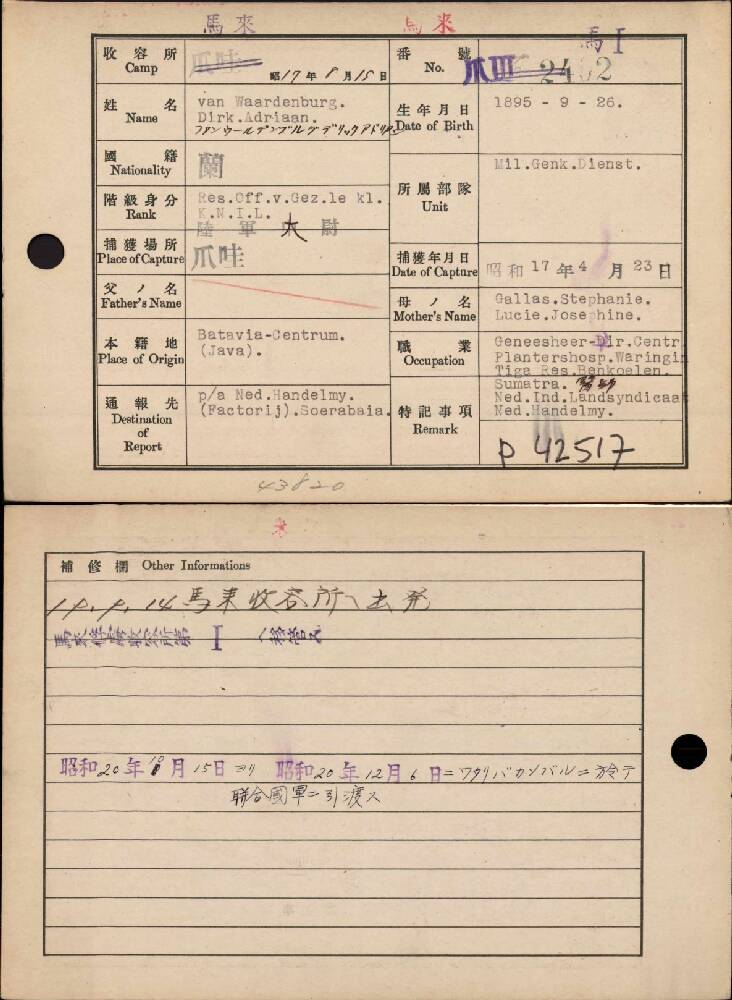 馬来
馬来
馬I
收容所
Camp
爪哇
昭17年8月15日
番號
No.
爪III
2402
姓名
Name
van Waardenburg.
Dirk.Adriaan.
生年月日
Date of Birth
1895 - 9 - 26.
國籍
Nationality
蘭
階級身分
Rank
Res.Off.v.Gez.le kl.
K.N.I.L.
陸軍大尉
所屬部隊
Unit
Mil.Genk.Dienst.
捕獲場所
Place of Capture
爪哇
捕獲年月日
Date of Capture
昭和17年4月23日
父ノ名
Father's Name
母ノ名
Mother's Name
Gallas.Stephanie.
Lucie.Josephine.
本籍地
Place of Origin
Batavia-Centrum.
(Java).
職業
Occupation
Geneesheer-Dir.Centr.
Plantershosp.Waringin
Tiga Res.Benkoelen.
Sumatra.
通報先
Destination
of
Report
p/a Ned.Handelmy.
(Factorij).Soerabaia.
特記事項
Remark
Ned.Ind.Landsyndicaat
Ned.Handelmy.
P 42517
43820
補修欄 Other Informations
馬来收容所ヘ出発
馬来俘虜收容所第I
昭和20年10月15日ヨリ 昭和20年12月6日ニワタリパカンバルニ於テ
聯合國軍ニ引渡ス